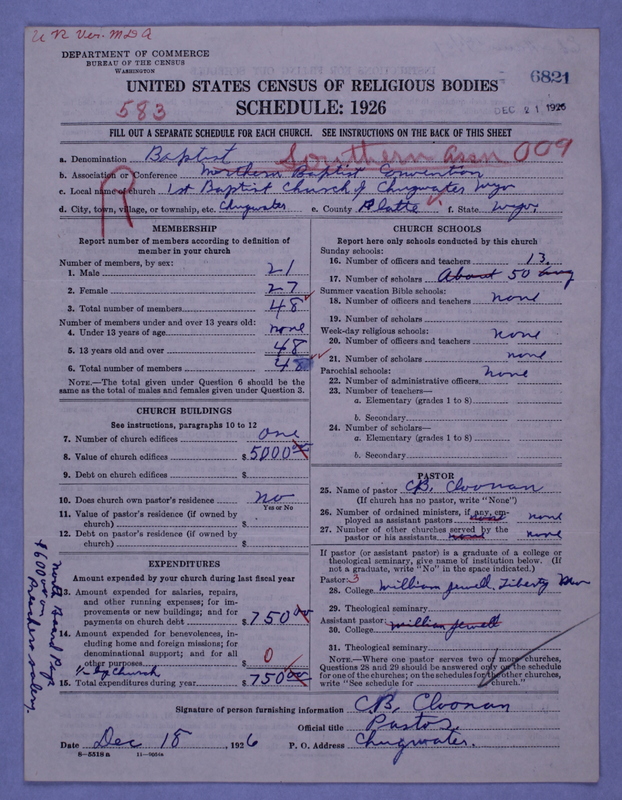 U R Ver. M D A
DEPARTMENT OF COMMERCE
BUREAU OF THE CENSUS
WASHINGTON
6821
UNITED STATES CENSUS OF RELIGIOUS BODIES
583
SCHEDULE: 1926
DEC 21 1926
FILL OUT A SEPARATE SCHEDULE FOR EACH CHURCH. SEE INSTRUCTIONS ON THE BACK OF THIS SHEET
a. Denomination Baptist Southern Assn 009
b. Association or Conference Northern Baptist Convention
c. Local name of church 1st Baptist Church of Chugwater Wyo
d. City, town, village, or township, etc. Chugwater e. County Platte f. State Wyo.
MEMBERSHIP
Report number of members according to definition of
member in your church
Number of members, by sex:
1. Male 21
2. Female 27
3. Total number of members 48
Number of members under and over 13 years old:
4. Under 13 years of age none
5. 13 years old and over 48
6. Total number of members 48
NOTE.—The total given under Question 6 should be the
same as the total of males and females given under Question 3.
CHURCH BUILDINGS
See instructions, paragraphs 10 to 12
7. Number of church edifices one
8. Value of church edifices $ 5000 00
9. Debt on church edifices $
10. Does church own pastor's residence No
Yes or No
11. Value of pastor's residence (if owned by
church) $
12. Debt on pastor's residence (if owned by
church) $
EXPENDITURES
Amount expended by your church during last fiscal year
13. Amount expended for salaries, repairs,
and other running expenses; for im-
provements or new buildings; and for
payments on church debt $ 750 00
14. Amount expended for benevolences, in-
cluding home and foreign missions; for
denominational support; and for all
other purposes $ 0
by Church
15. Total expenditures during year $ 750 00
North Board Pays
$600 00 on
Preachers salary.
CHURCH SCHOOLS
Report here only schools conducted by this church
Sunday schools:
16. Number of officers and teachers 13
17. Number of scholars About 50 avg
Summer vacation Bible schools:
18. Number of officers and teachers none
19. Number of scholars
Week-day religious schools:
20. Number of officers and teachers none
21. Number of scholars none
Parochial schools: none
22. Number of administrative officers
23. Number of teachers—
a. Elementary (grades 1 to 8)
b. Secondary
24. Number of scholars—
a. Elementary (grades 1 to 8)
b. Secondary
PASTOR
25. Name of pastor C.B. Cloonan
(If church has no pastor, write "None")
26. Number of ordained ministers, if any, em-
ployed as assistant pastors none none
27. Number of other churches served by the
pastor or his assistants none none
If pastor (or assistant pastor) is a graduate of a college or
theological seminary, give name of institution below. (If
not a graduate, write "No" in the space indicated.)
Pastor: 3
28. College William Jewell, Liberty Mo
29. Theological seminary
Assistant pastor:
30. College William Jewell
31. Theological seminary
NOTE.—Where one pastor serves two or more churches,
Questions 28 and 29 should be answered only on the schedule
for one of the churches; on the schedules for the other churches,
write "See schedule for church."
Signature of person furnishing information C.B. Cloonan
Official title Pastor.
Date Dec 18, 1926 P. O. Address Chugwater.
8—5518 a